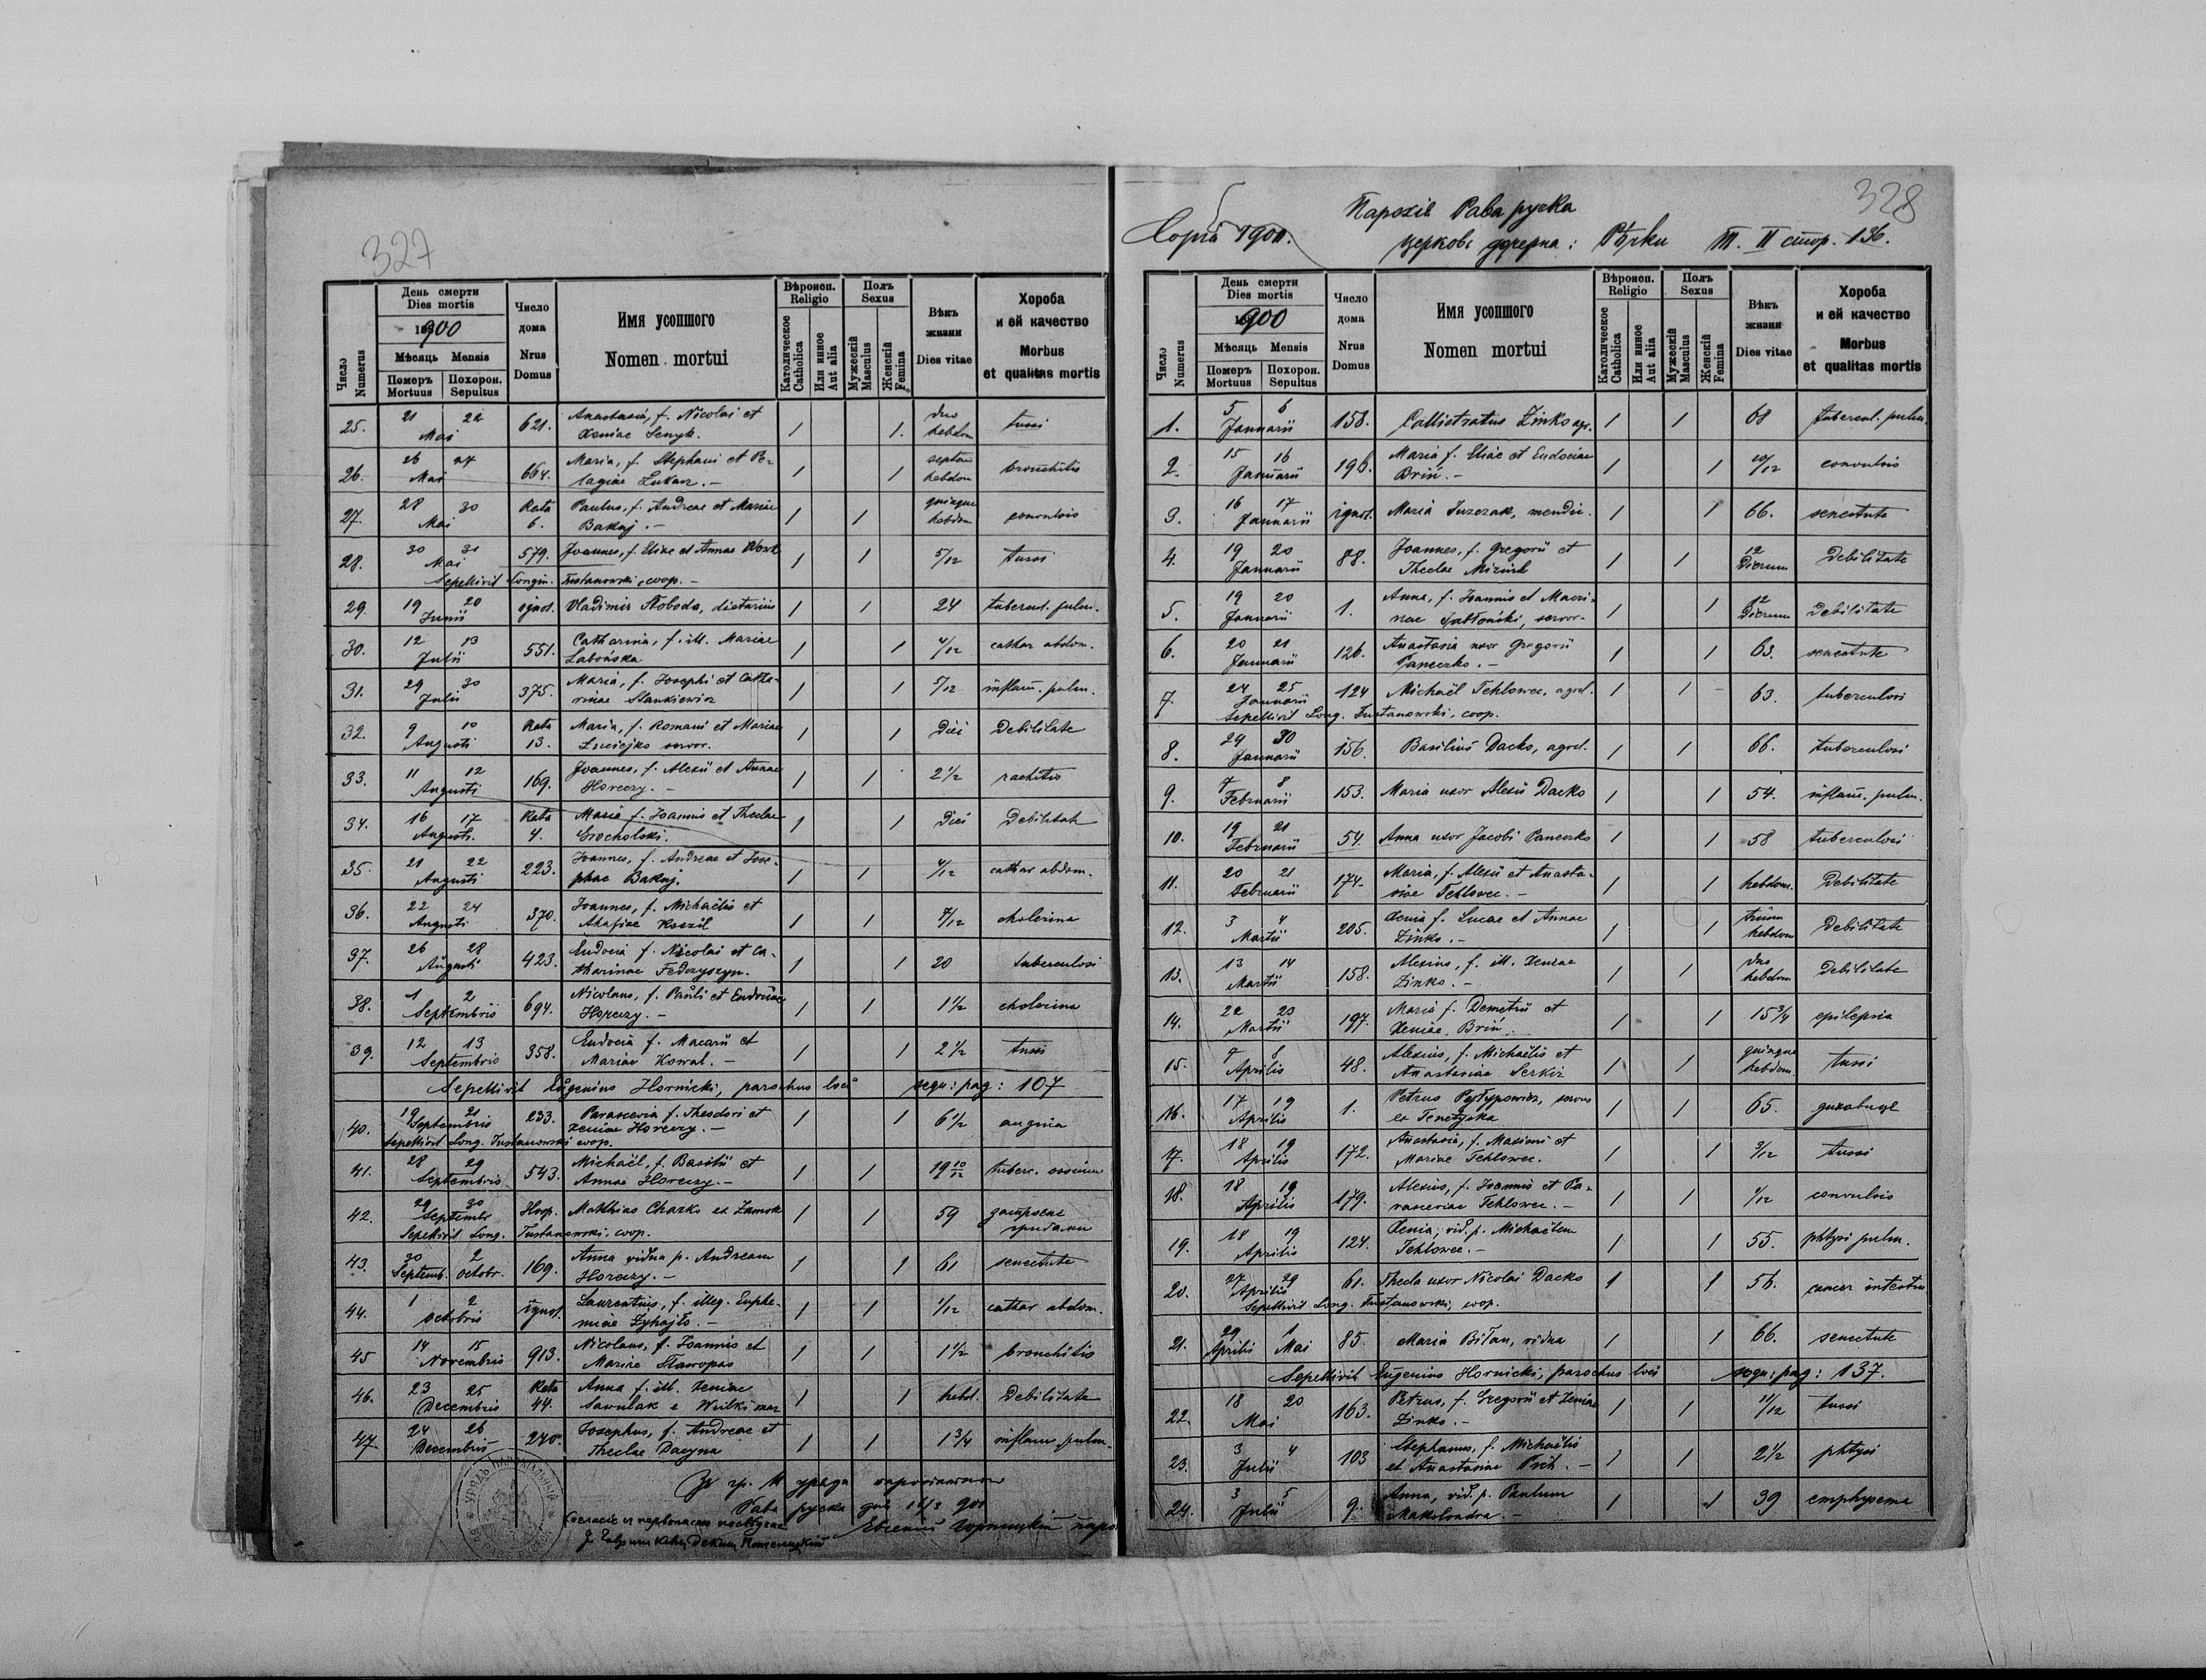 327
Число Numerus
День смерти
Dies mortis
1900
Мѣсяць Mensis
Померъ Mortuus
Похорон. Sepultus
Число дома
Nrus Domus
Имя усопшого
Nomen mortui
Вѣроисп. Religio
Католическое Catholica
Или инное Aut alia
Полъ Sexus
Мужескій Masculus
Женскій Femina
Вѣкъ жизни
Dies vitae
Хороба и ей качество
Morbus et qualitas mortis
25. 21 22 Mai 621. Anastasia, f. Nicolai et Xeniae Senyk. 1 1. duo hebdom tussi
26. 26 27 Mai 664. Maria, f. Stephani et Pelagiae Lukacz. – 1 1 septem hebdom bronchitis
27. 28 30 Mai Rata 6. Paulus, f. Andreae et Mariae Bakaj. – 1 1 quinque hebdom convulsis
28. 30 31 Mai 579. Joannes, f. Eliae et Annae 1 1 5/12 tussi
Sepelivit Longin. Tustanowski, coop. –
29. 19 20 Junii ignot. Vladimir Stoboda, dietarius 1 1 24 tubercul. pulm.
30. 12 13 Julii 551. Catharina, f. ill. Mariae Labońska 1 1 4/12 cathar abdom.
31. 29 30 Julii 375. Maria, f. Josephi et Catharinae Stankiewicz 1 1 5/12 inflam. pulm.
32. 9 10 Augusti Rata 13. Maria, f. Romani et Mariae servor. 1 1 Diei Debilitate
33. 11 12 Augusti 169. Joannes, f. Alexii et Annae Horeczy. – 1 1 2 1/2 rachitis
34. 16 17 Augusti. Rata 4. Maria f. Joannis et Theclae Grocholski. 1 1 Diei Debilitate
35. 21 22 Augusti 223. Joannes, f. Andreae et Josephae Bakaj. 1 1 4/12 cathar abdom.
36. 22 24 Augusti 370. Joannes, f. Michaëlis et Ahafiae Koszil 1 1 7/12 cholerina
37. 26 28 Augusti 423. Eudocia f. Nicolai et Catharinae Fedczyszyn. 1 1 20 tuberculosi
38. 1 2 Septembris 694. Nicolaus, f. Pauli et Eudociae Horeczy. – 1 1 1 1/2 cholerina
39. 12 13 Septembris 358. Eudocia f. Macarii et Mariae Kowal. – 1 1 2 1/2 tussi
Sepelivit Eugenius Hornicki, parochus loci sequ: pag: 107
40. 19 21 Septembris 233. Parascevia f. Theodori et Xeniae Horeczy. – 1 1 6 1/2 angina
Sepelivit Long. Tustanowski coop.
41. 28 29 Septembris 543. Michaël, f. Basilii et Annae Horeczy. – 1 1 19 10/12 tuberc. ossium
42. 29 30 Septembr Hosp. Matthias Charko ex Zamok 1 1 59
Sepelivit Long. Tustanowski, coop.
43. 30 2 Septemb. Octobr. 169. Anna vidua p. Andream Horeczy. – 1 1 61 senectute
44. 1 2 Octobris ignot. Laurentius, f. illeg. Euphemiae Zyhajło. – 1 1 1/12 cathar abdom.
45 14 15 Novembris 913. Nicolaus, f. Joannis et Mariae Staropas 1 1 1 1/2 bronchitis
46. 23 25 Decembris Rata 44. Anna f. ill. Xeniae Sawulak e Wulki maz 1 1 hebd. Debilitate
47. 24 26 Decembris 270. Josephus, f. Andreae et Theclae Dacyna 1 1 1 3/4 inflam pulm.
Рава руска дня
328
1900.
Парохія Рава руска
церковь дочерна: Рѣчки Т. II стор. 136.
Число Numerus
День смерти
Dies mortis
1900
Мѣсяць Mensis
Померъ Mortuus
Похорон. Sepultus
Число дома
Nrus Domus
Имя усопшого
Nomen mortui
Вѣроисп. Religio
Католическое Catholica
Или инное Aut alia
Полъ Sexus
Мужескій Masculus
Женскій Femina
Вѣкъ жизни
Dies vitae
Хороба и ей качество
Morbus et qualitas mortis
1. 5 6 Januarii 158. Callistratus Zinko agr. 1 1 68 tubercul. pulm.
2. 15 16 Januarii 196. Maria f. Eliae et Eudociae Briń. – 1 1 10/12 convulsis
3. 16 17 Januarii ignot. Maria Juzczak, mendic. 1 1 66. senectute
4. 19 20 Januarii 88. Joannes, f. Gregorii et Theclae 1 1 12 Dierum Debilitate
5. 19 20 Januarii 1. Anna, f. Joannis et Jabłoński, servor. 1 1 12 Dierum Debilitate
6. 20 21 Januarii 126. Anastasia uxor Gregorii Paneczko. – 1 1 63. senectute
7. 24 25 Januarii 124 Michaël Tehlowec, agrol. 1 1 63. tuberculosi
Sepelivit Long. Tustanowski, coop.
8. 29 30 Januarii 156. Basilius Dacko, agrol. 1 1 66. tuberculosi
9. 7 8 Februarii 153. Maria uxor Alexii Dacko 1 1 54. inflam. pulm.
10. 19 21 Februarii 54. Anna uxor Jacobi Paneczko 1 1 58 tuberculosi
11. 20 21 Februarii 174. Maria, f. Alexii et Anastasiae Tehlowec. – 1 1 hebdom. Debilitate
12. 3 4 Martii 205. Xenia f. Lucae et Annae Zinko. – 1 1 trium hebdom Debilitate
13. 13 14 Martii 158. Alexius, f. ill. Xeniae Zinko. – 1 1 duo hebdom Debilitate
14. 22 23 Martii 197. Maria f. Demetrii et Xeniae Briń. 1 1 15 3/4 epilepsia
15. 7 8 Aprilis 48. Alexius, f. Michaëlis et Anastasiae Serkiz 1 1 quinque hebdom. tussi
16. 17 19 Aprilis 1. Petrus Pyłypowicz, servus ex 1 1 65.
17. 18 19 Aprilis 172. Anastasia, f. Maximi et Mariae Tehlowec. 1 1 3/12 tussi
18. 18 19 Aprilis 179. Alexius, f. Joannis et Parasceviae Tehlowec. – 1 1 1/12 convulsis
19. 18 19 Aprilis 124. Xenia, vid. p. Michaëlem Tehlowec. – 1 1 55. phtysi pulm.
20. 27 29 Aprilis 61. Thecla uxor Nicolai Dacko 1 1 56. cancer intestin
Sepelivit Long. Tustanowski, coop.
21. 29 1 Aprilis Mai 85. Maria Biłan, vidua 1 1 66. senectute
Sepelivit Eugenius Hornicki, parochus loci sequ: pag: 137.
22. 18 20 Mai 163. Petrus, f. Gregorii et Xeniae Zinko. – 1 1 11/12 tussi
23. 3 4 Julii 103 Stephanus, f. Michaëlis et Anastasiae – 1 1 2 1/2 phtysi
24. 3 5 Julii 9. Anna, vid. p. Paulum Makolondra. – 1 1 39 emphysema